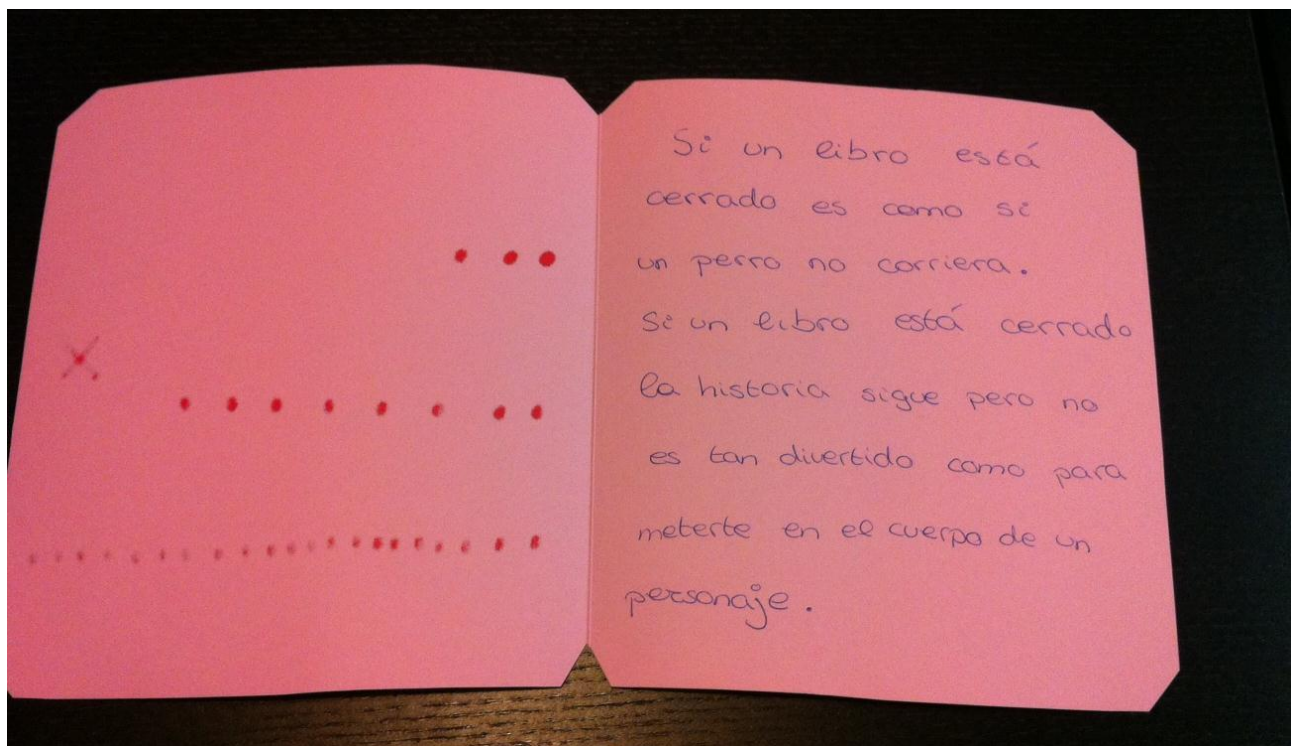 Si un libro está
cerrado es como si
un perro no corriera.
Si un libro está cerrado
la historia sigue pero no
es tan divertido como para
meterte en el cuerpo de un
personaje.